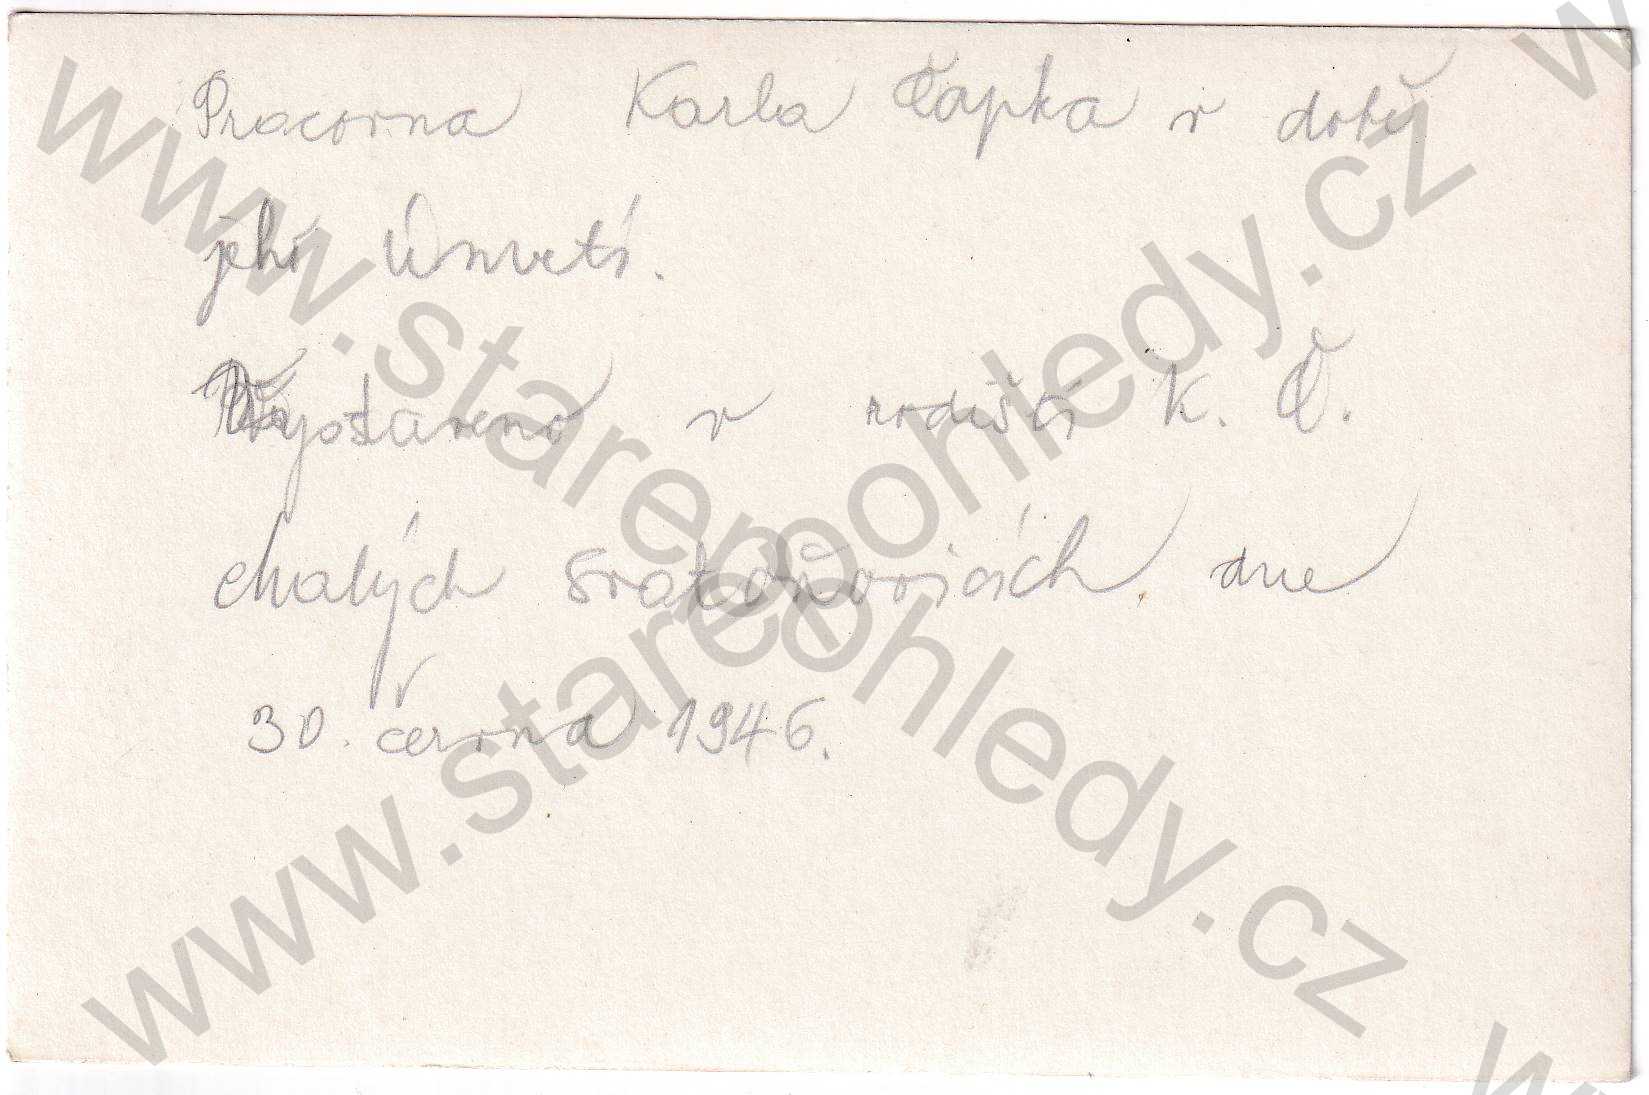 Pracovna Karla Čapka v době
jeho Úmrtí.
Vystaveno v rodišti K. Č.
Malých Svatoňovicích dne
30. června 1946.
www.starepohledy.cz
www.starepohledy.cz